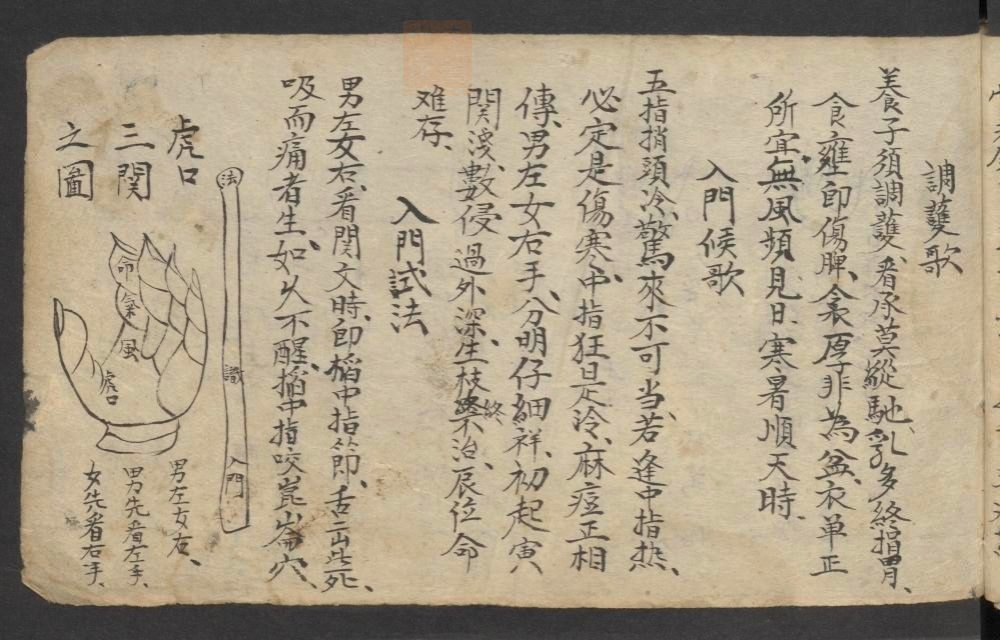 調護歌
養子須調護、看承莫縱馳、乳多終損胃、
食壅即傷脾、衾厚非為益、衣单正
所宜、無風頻見日、寒暑順天時、
入門候歌
五指捎頭冷、驚來不可当、若逢中指热、
必定是傷寒、中指狂是冷、麻痘正相
傳、男左女右手、分明仔細祥、初起寅
関淺、數侵過外深、生枝終不治、辰位命
难存、
入門試法
男左女右、看関文時、即搯中指節、舌出此死、
吸而痛者生、如久不醒、搯中指咬崑崙穴、
法
識
入門
虎口
三関
之圖
命
氣
風
虎口
男左女右、
男先看左手、
女先看右手、